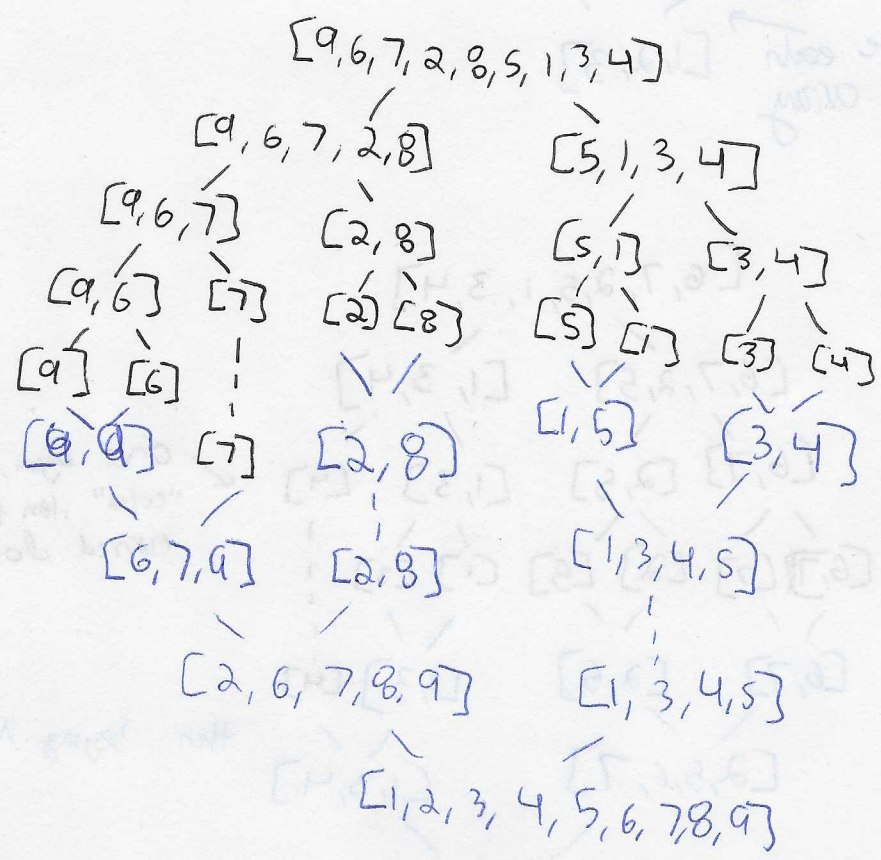 [9,6,7,2,8,5,1,3,4]
[9,6,7,2,8] [5,1,3,4]
[9,6,7] [2,8] [5,1] [3,4]
[9,6] [7] [2] [8] [5] [1] [3] [4]
[9] [6]
[6,9] [7] [2,8] [1,5] [3,4]
[6,7,9] [2,8] [1,3,4,5]
[2,6,7,8,9] [1,3,4,5]
[1,2,3,4,5,6,7,8,9]